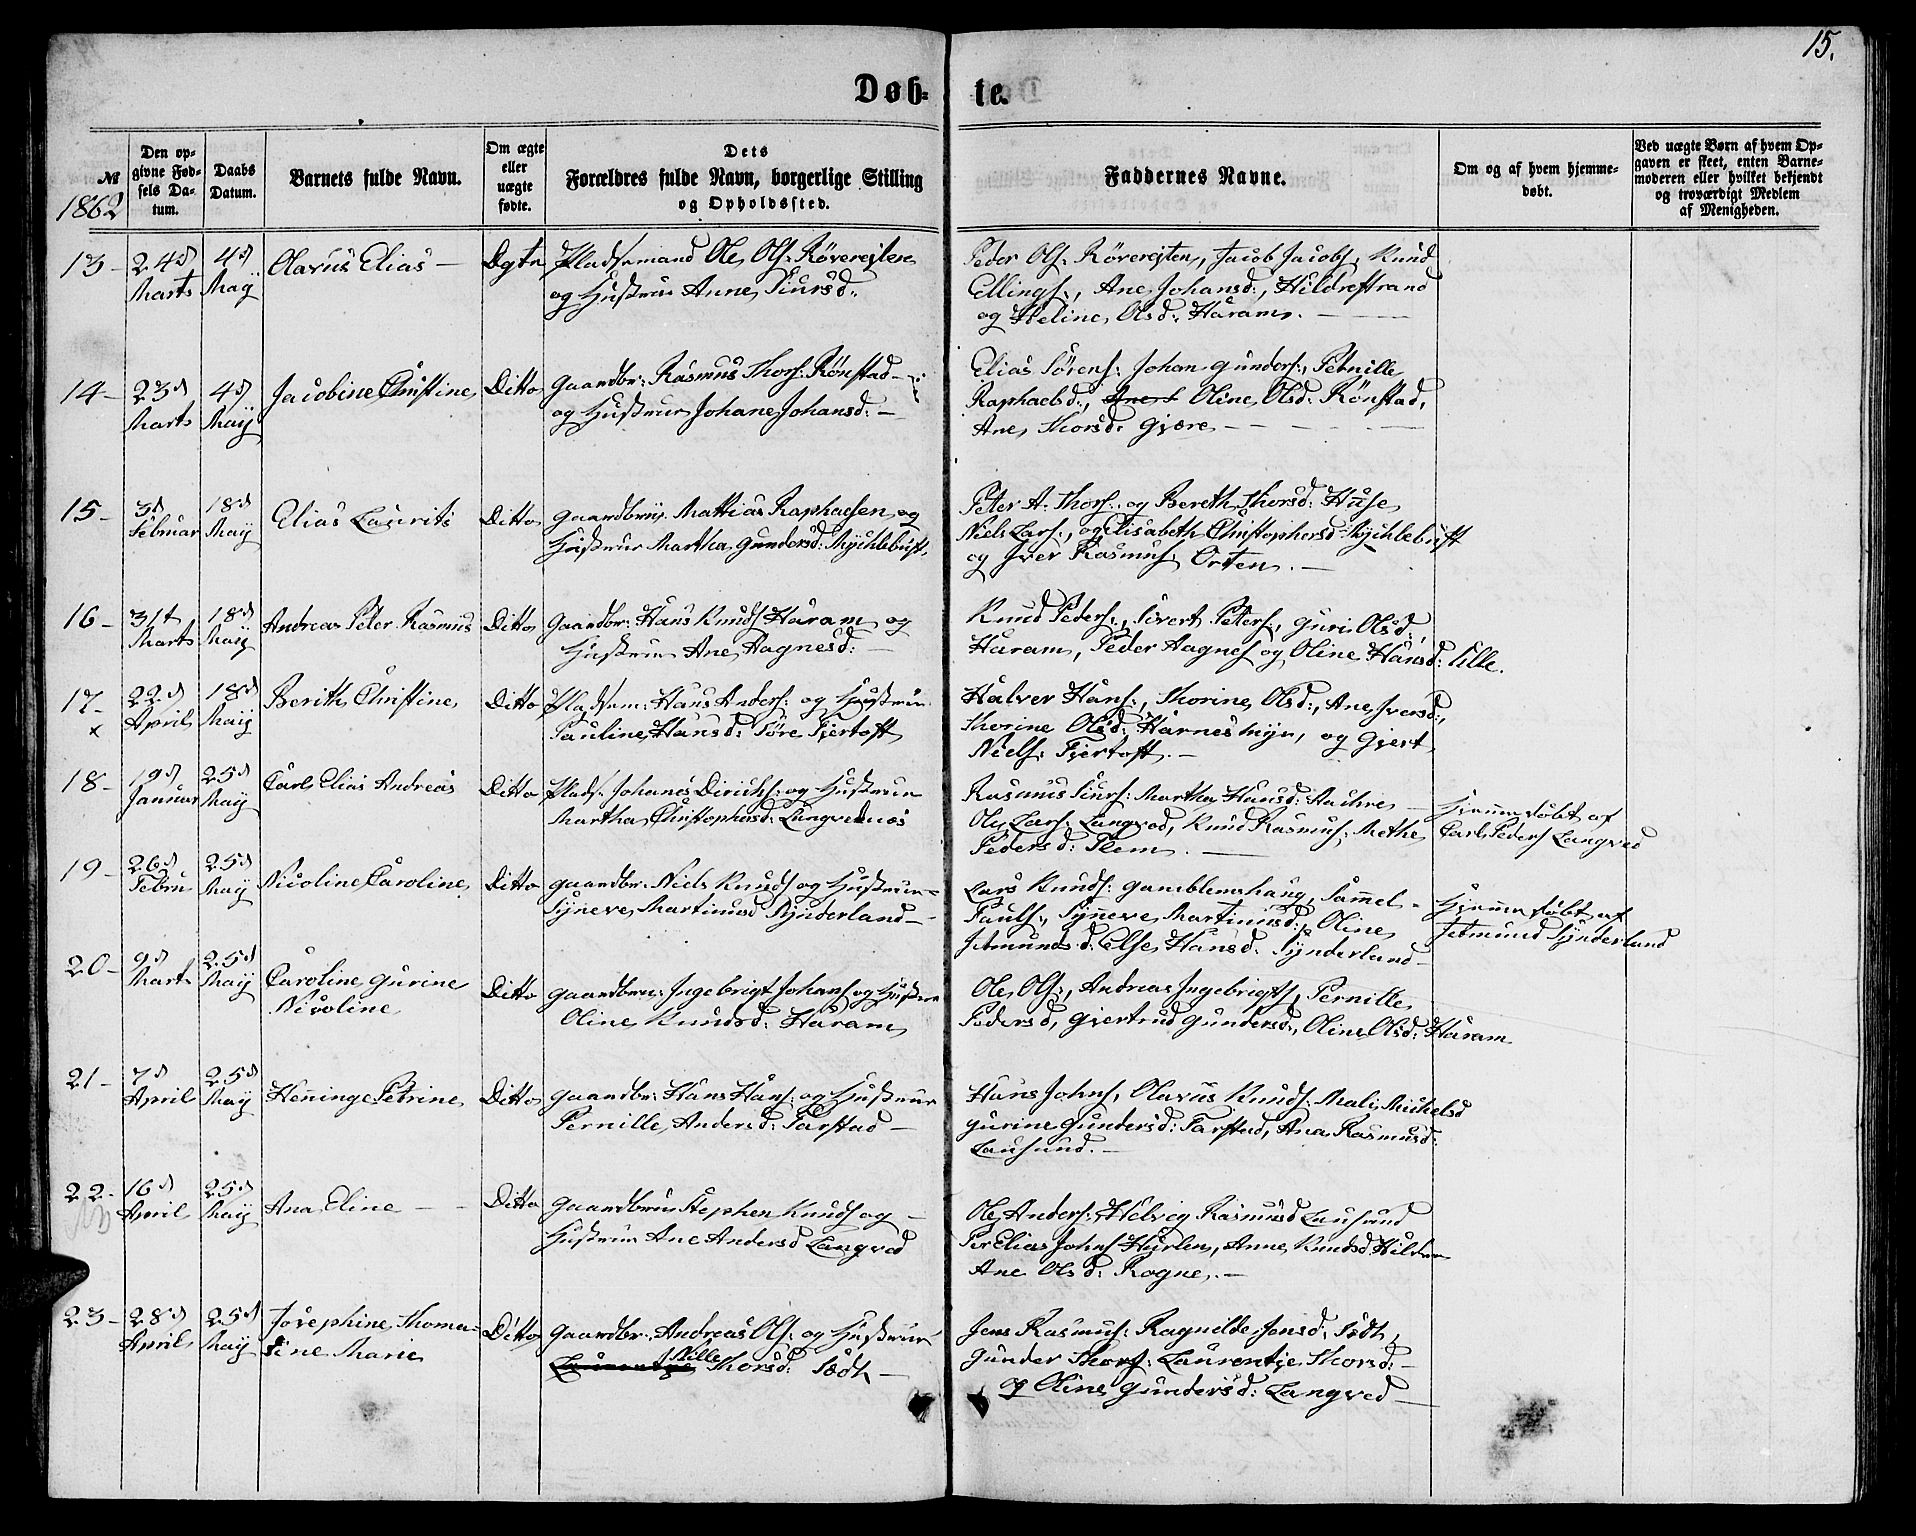 15.
Døb- te.
№
1862
Den op-
givne Fød-
sels Da-
tum.
Daabs
Datum.
Barnets fulde Navn.
Om ægte
eller
uægte
fødte.
Dets
Forældres fulde Navn, borgerlige Stilling
og Opholdssted.
Faddernes Navne.
Om og af hvem hjemme-
døbt.
Ved uægte Børn af hvem Op-
gaven er skeet, enten Barne-
moderen eller hvilket bekjendt
og troværdigt Medlem
af Menigheden.
13- 24d Marts 4d May Olavus Elias - Ægte Pladsemand Ole Ols:
og Hustrue Anne Siursd:
Peder Ols: Jacob Jacobs, Knud
Ellings:, Ane Johansd:, Hildrestrand
og Heline Olsd: Haram. -
14- 23d Marts 4d May Jacobine Christine Ditto Gaardbr: Rasmus Thors: Rønstad -
og Hustrue Johane Johansd: -
Elias Sørens: Johan Gunders:, Petnille
Raphaelsd:, Oline Olsd: Rønstad,
Ane Thorsd: Gjære -
15- 3d Februar 18d May Elias Laurits Ditto Gaardbru. Mattias Raphaelsen og
Hustrue Martha Gundersd: Mychlebust,
Peter A. Thors:. og Bereth Thorsd: Huse
Niels Lars:, og Elisabeth Christophersd: Mychlebust
og Iver Rasmus: Orten. -
16- 31t Marts 18d May Andreas Peter Rasmus Ditto Gaardbr: Hans Knuds: Haram og
Hustrue Ane Aagnesd: -
Knud Peders:, Sivert Peters:, Guri Olsd:,
Haram, Peder Aagnes: og Oline Hansd: Ulle.
17- x 22d April 18d May Berith Christine Ditto Pladsem: Hans Anders: og Hustrue
Pauline Hansd: Søre Fjertoft
Halver Hans:, Thorine Olsd:, Ane Iversd:,
Thorine Olsd: Harnesmyr, og Gjert
Niels: Fjertoft. -
18- 19d Januar 25d May Carl Elias Andreas Ditto Plads. Johanes Dirichs: og Hustrue
Martha Christophersd: Langvednæs
Rasmus Siurs: Martha Hansd: -
Ole Lars: Langved, Knud Rasmus: Methe
Pedersd: Flem. -
Hjemmedøbt af
Carl Peders Langved
19- 26d Febru 25d May Nicoline Caroline Ditto Gaardbr: Niels Knuds og Hustrue -
Synneve Martinusd Synderland -
Lars Knuds: Gamblemshaug, Sammel -
Pauls:, Synneve Martinusd:, Oline
Jetmundsd: Else Hansd: Synderland -
Hjemmedøbt af
Jetmund Synderland
20- 9d Marts 25d May Caroline Gurine
Nicoline Ditto Gaardbru: Ingebrigt Johans og Hustrue
Oline Knudsd: Haram
Ole Ols:, Andreas Ingebrigts:, Pernille
Pedersd, Gjertrud Gundersd:, Oline Olsd: Haram
21- 7d April 25d May Heninge Petrine Ditto Gaardbr: Hans Hans: og Hustrue
Pernille Andersd: Farstad -
Hans Johns:, Olavus Knuds: Mali Michelsd
Gurine Gundersd: Farstad, Ana Rasmusd:
Lausund. -
22- 16d April 25d May Ana Eline - - Ditto Gaardbru Stephen Knuds og -
Hustrue Ane Andersd Langved
Ole Anders:, Helvig Rasmusd Lausund
Per Elias Johns Hurlen, Anne Knudsd Hildre
Ane Olsd: Rogne. -
23- 28d April 25d May Josephine Thoma-
sine Marie Ditto Gaardbr. Andreas Ols: og Hustrue
Nille Thorsd: Sædt -
Jens Rasmus: Ragnilde Jensd: Sædt,
Gunder Thors: Laurentje Thorsd: -
og Oline Gundersd: Langved -